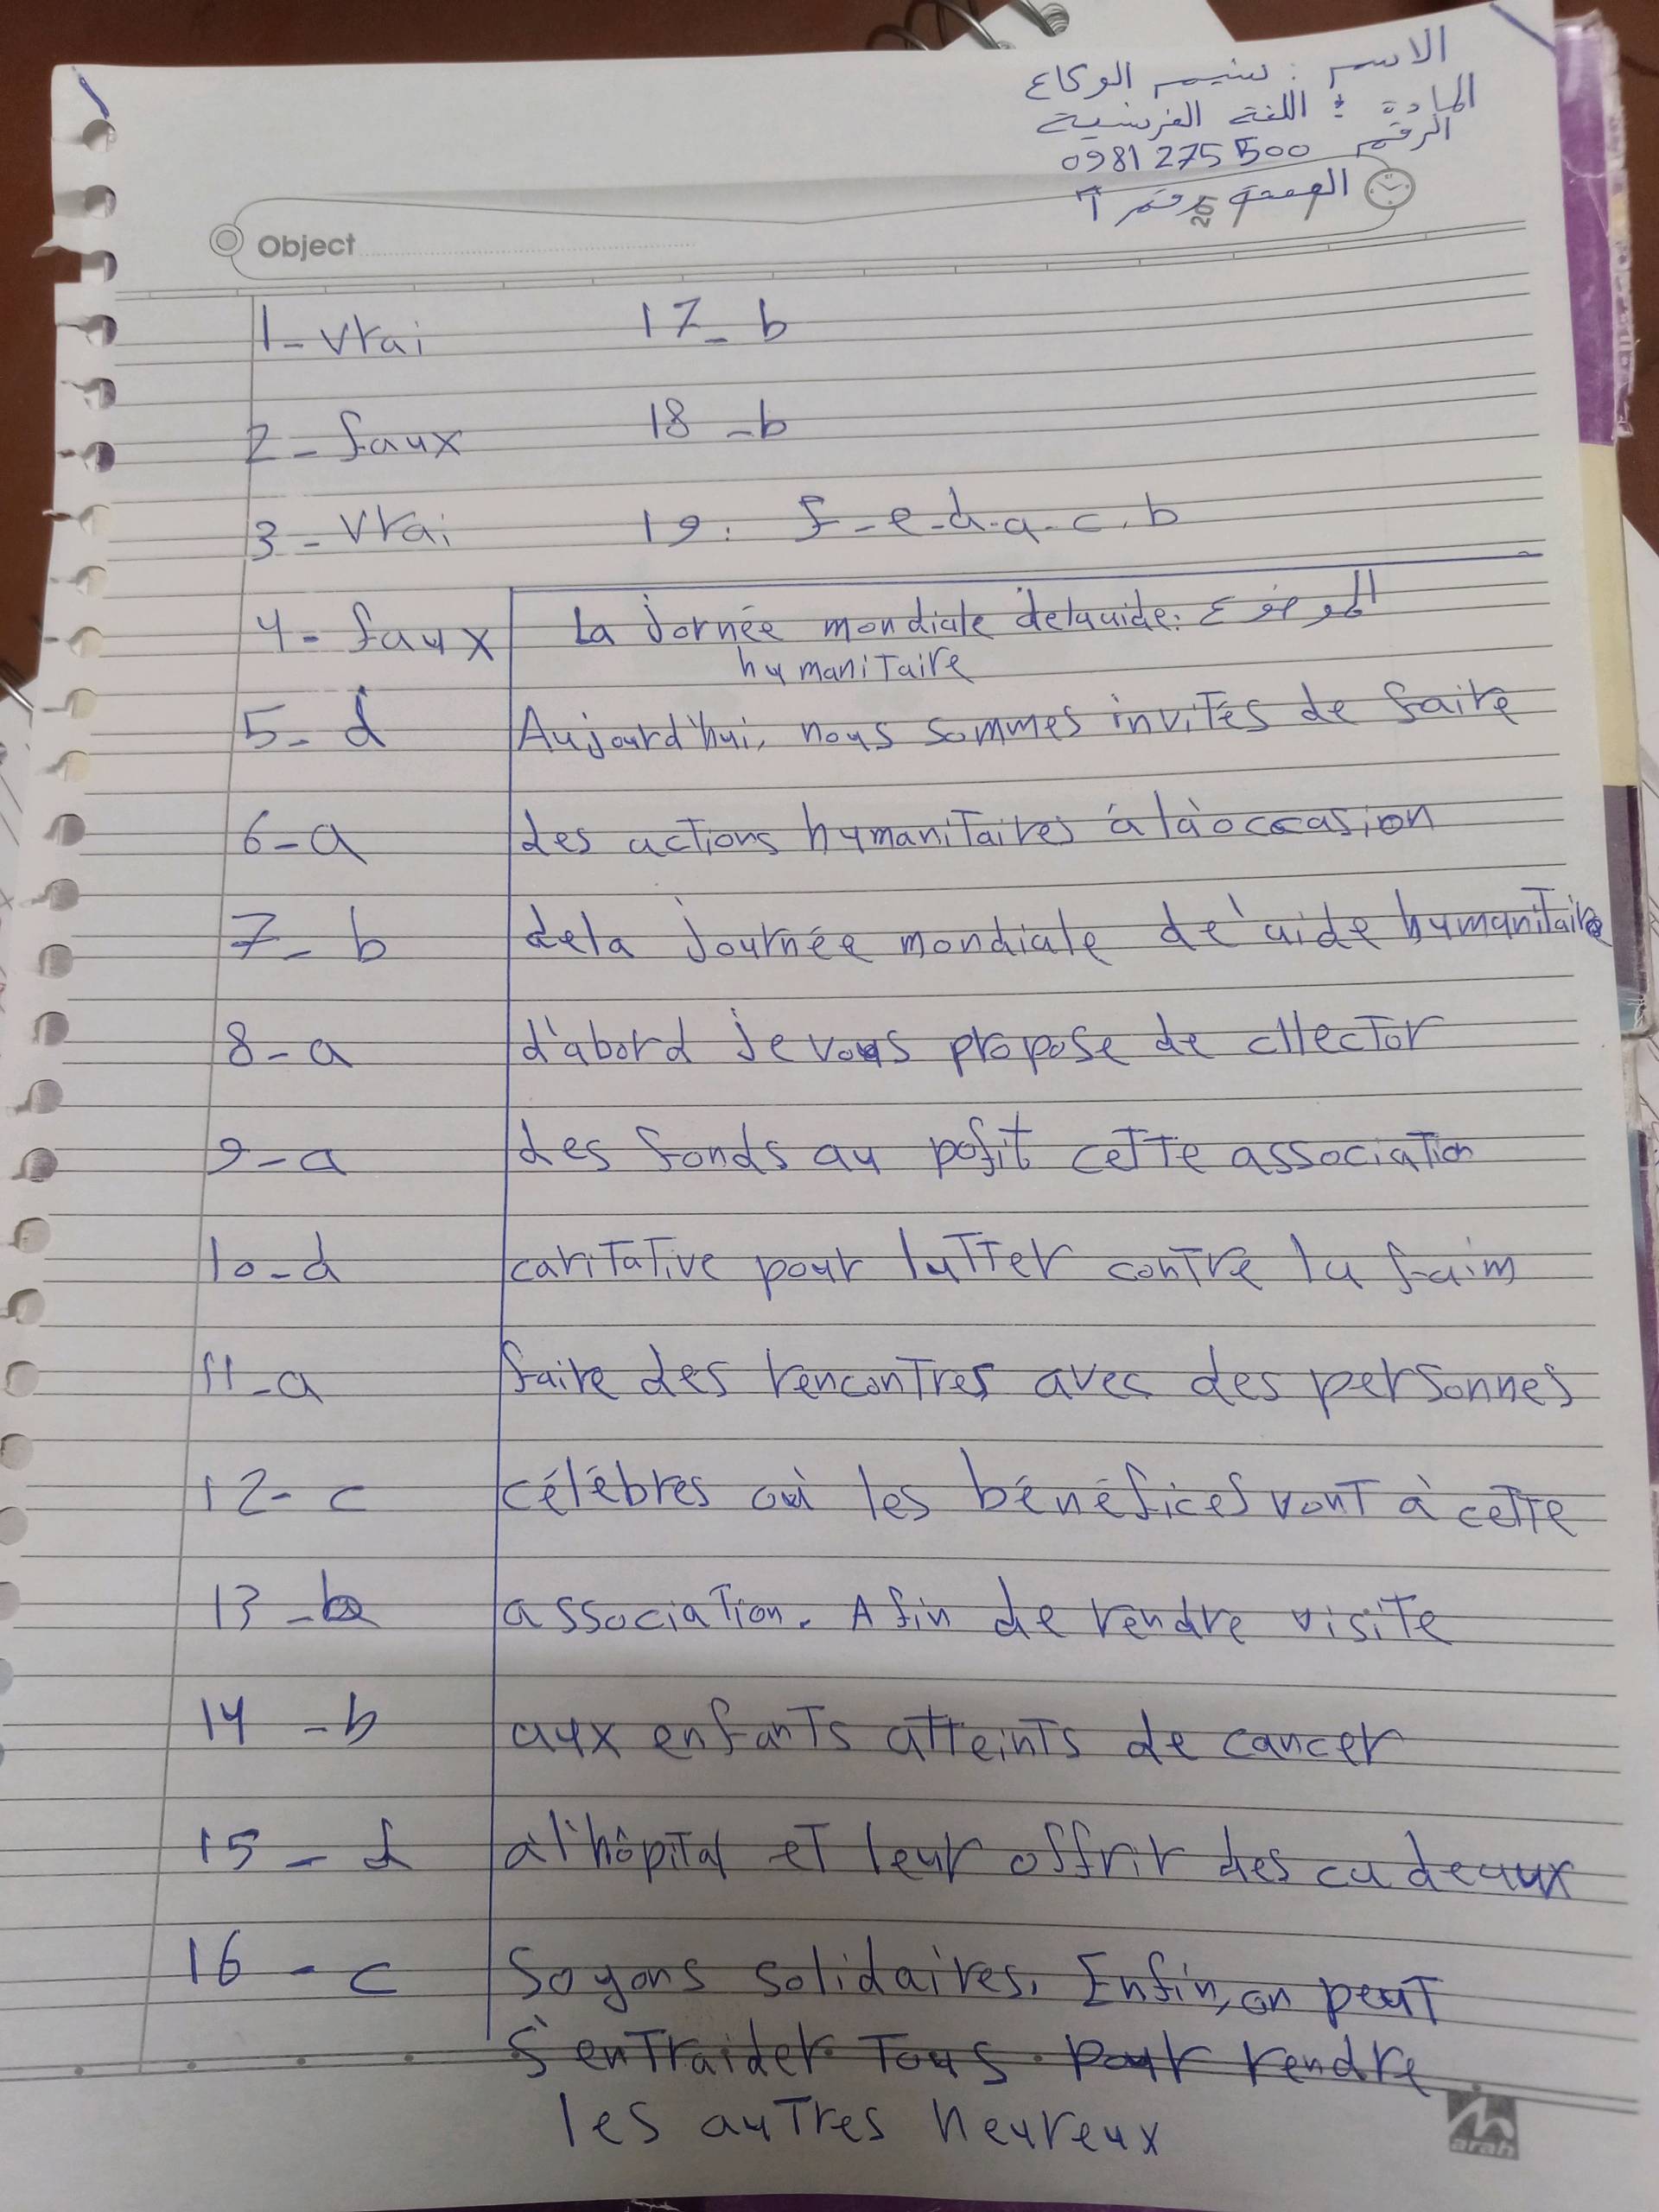 الاسم : سنيم الوكاع
المادة : اللغة الفرنسية
الرقم 0981 275 500
رقم
Object
1- vrai
2- faux
3- vrai
4- faux
5- d
6- a
7- b
8- a
9- a
10- d
11- a
12- c
13- b
14 - b
15 - d
16 - c
17- b
18 - b
19: f-e-d-a-c.b
الموضوع : La Jornée mondiale delauide
humanitaire
Aujourd'hui, nous sommes invités de faire
des actions humanitaires á làoccasion
dela Journée mondiale de'aide humanitaire
d'abord je vous propose de cllector
des fonds au pofit cette association
caritative pour lutter contre la faim
faire des rencontres avec des personnes
célèbres où les bénéfices vont à cette
association. Afin de rendre visite
aux enfants atteints de cancer
àl'hôpital et leur offrir des cadeaux
Soyons solidaires. Enfin, on peut
s'entraider tous pour rendre
les autres heureux
arah